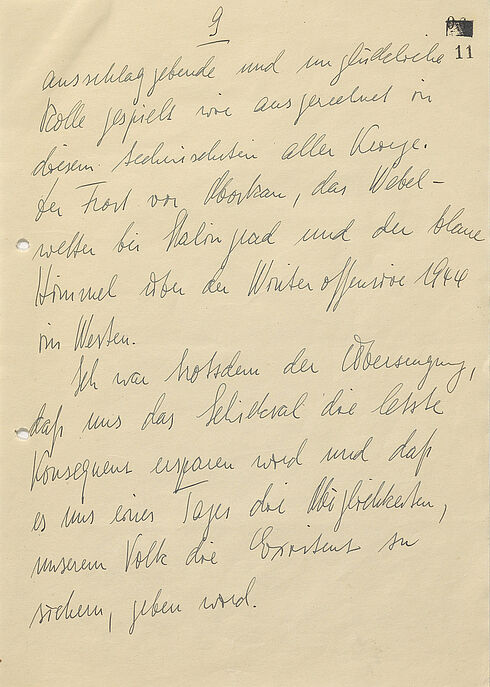 9
11
ausschlaggebende und unglückliche
Rolle gespielt wie ausgerechnet in
diesem technischsten aller Kriege.
Der Frost vor Moskau, das Nebel-
wetter bei Stalingrad und der blaue
Himmel über der Winteroffensive 1944
im Westen.
Ich war trotzdem der Überzeugung,
daß uns das Schicksal die letzte
Konsequenz ersparen wird und daß
es uns eines Tages die Möglichkeiten,
unserem Volk die Existenz zu
sichern, geben wird.